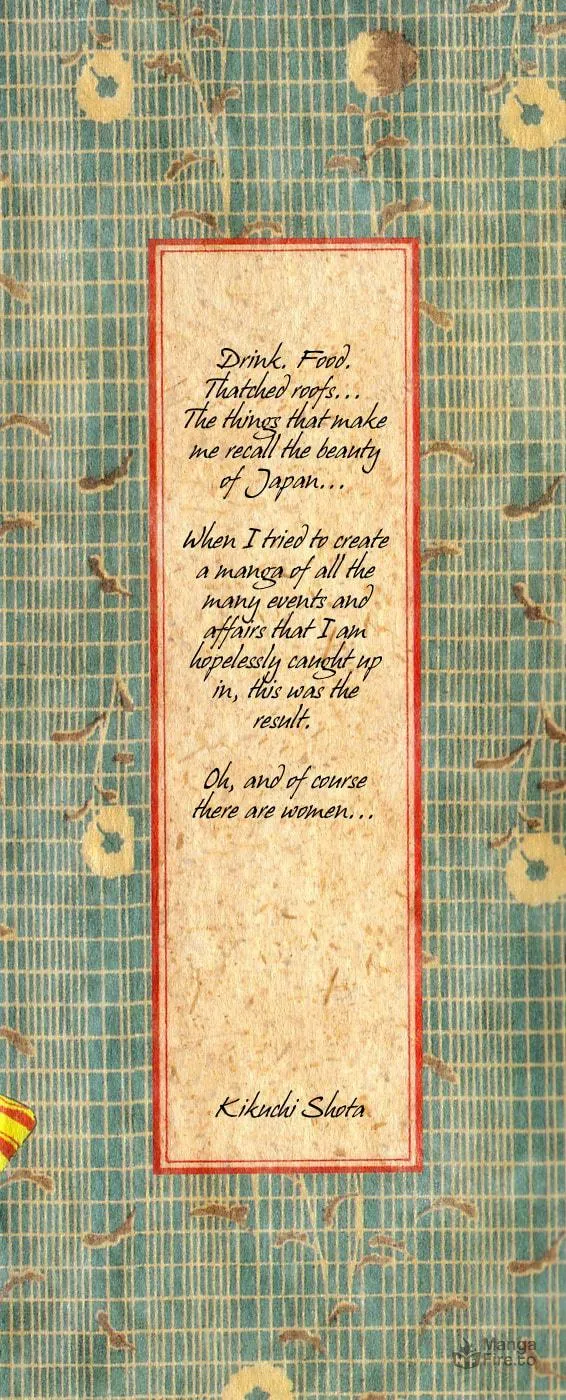 Drink. Food.
Thatched roofs...
The things that make
me recall the beauty
of Japan...
When I tried to create
a manga of all the
many events and
affairs that I am
hopelessly caught up
in, this was the
result.
Oh, and of course
there are women...
Kikuchi Shota
Manga
Fire.to